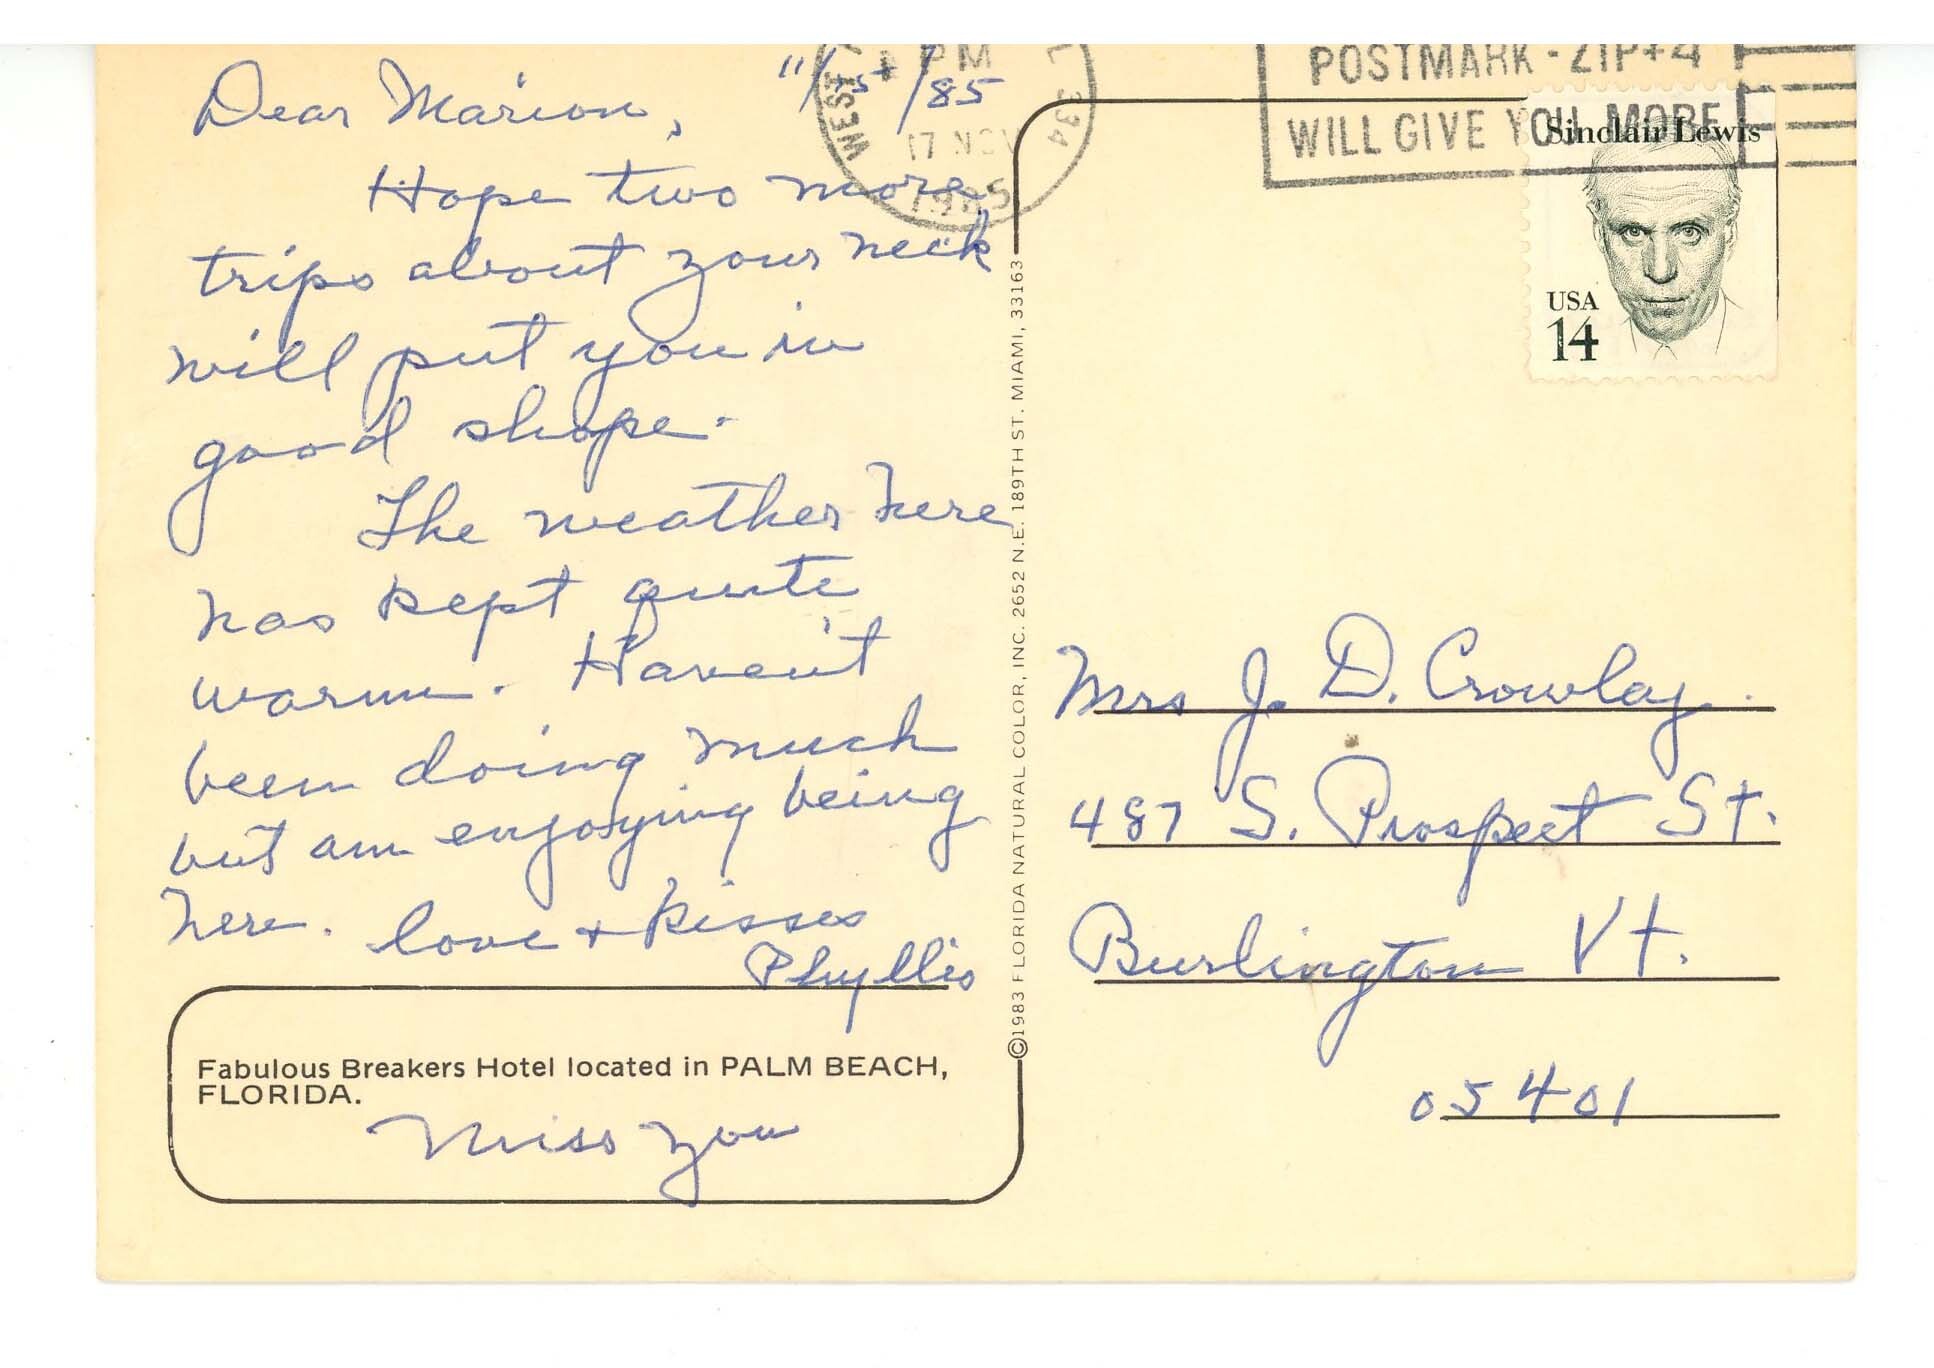 Dear Marion, 11/15/85
Hope two more
trips about your neck
will put you in
good shape.
The weather here
has kept quite
warm. Haven't
been doing much
but am enjoying being
here. love + kisses
Phyllis
Fabulous Breakers Hotel located in PALM BEACH,
FLORIDA.
Miss you
©1983 FLORIDA NATURAL COLOR, INC. 2652 N.E. 189TH ST. MIAMI, 33163
PM
WEST
17 NOV
1985
L 334
POSTMARK - ZIP+4
WILL GIVE YOU MORE
Sinclair Lewis
USA
14
Mrs J. D. Crowley
487 S. Prospect St.
Burlington Vt.
05401